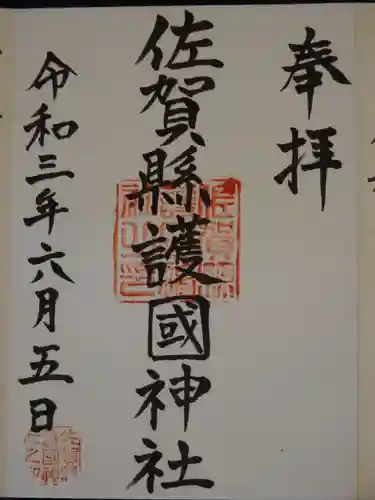 奉拝
佐賀縣護國神社
令和三年六月五日